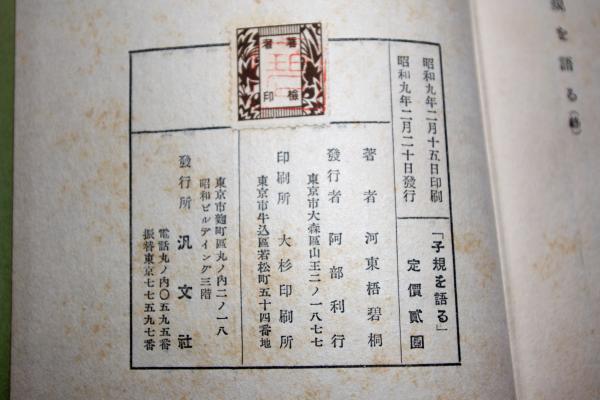 規を語る(終)
昭和九年二月十五日印刷
昭和九年二月二十日發行
「子規を語る」
定價貳圓
著者 河東梧碧桐
發行者 阿部利行
東京市大森區山王二ノ一八七七
印刷所 大杉印刷所
東京市牛込區若松町五十四番地
東京市麴町區丸ノ內二ノ一八
昭和ビルデイング三階
發行所 汎文社
電話丸ノ內〇五九五番
振替東京七七五九七番
著者
檢印